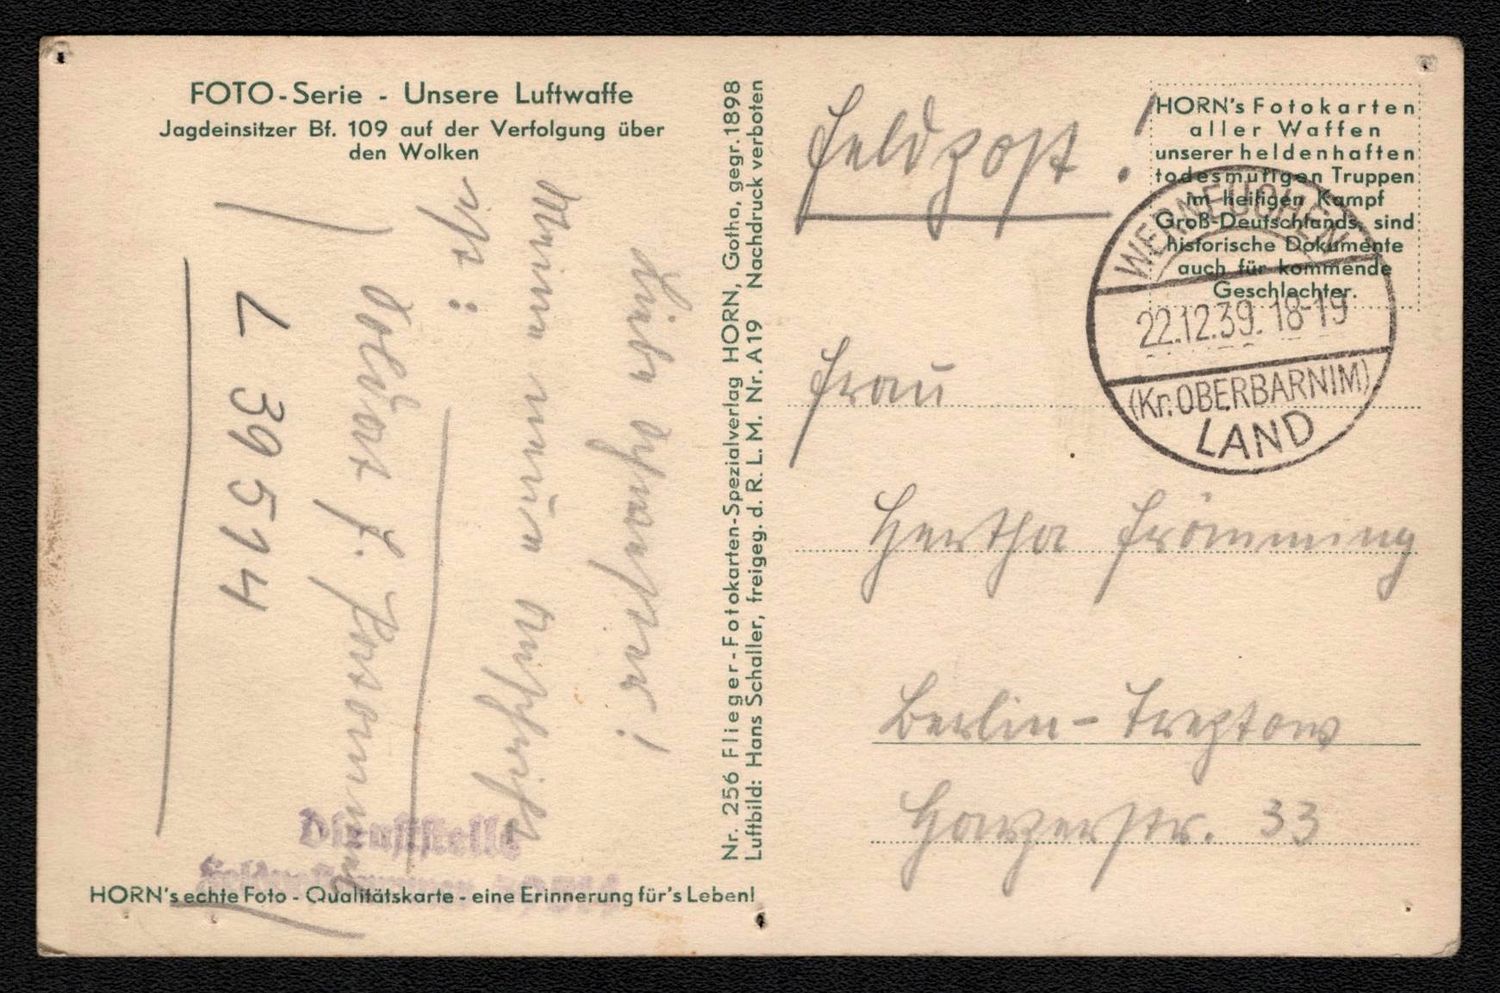 FOTO-Serie - Unsere Luftwaffe
Jagdeinsitzer Bf. 109 auf der Verfolgung über
den Wolken
Liebe Schwester!
Meine neue Anschrift
ist:
Soldat F.
L 39514
Dienststelle
Feldpostnummer
HORN's echte Foto - Qualitätskarte - eine Erinnerung für's Leben!
Nr. 256 Flieger-Fotokarten-Spezialverlag HORN, Gotha, gegr. 1898
Luftbild: Hans Schaller, freigeg. d. R. L. M. Nr. A19 Nachdruck verboten
Feldpost!
HORN's Fotokarten
aller Waffen
unserer heldenhaften
todesmutigen Truppen
im heiligen Kampf
Groß-Deutschlands, sind
historische Dokumente
auch für kommende
Geschlechter.
WERNEUCHEN
22.12.39. 18-19
(Kr. OBERBARNIM)
LAND
Frau
Hertha Frömming
Berlin-Treptow
Harzerstr. 33